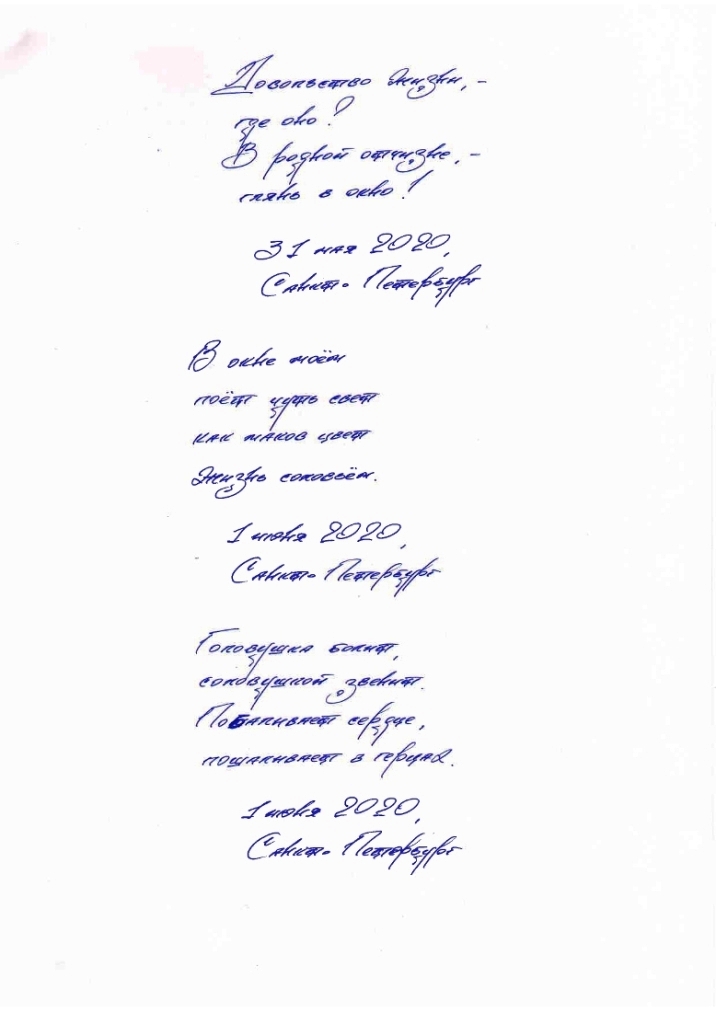 Довольство жизни, –
где оно?
В родной отчизне, –
глянь в окно!
31 мая 2020,
Санкт-Петербург
В окне моём
поёт чуть свет
как маков цвет
Жизнь соловьём.
1 июня 2020,
Санкт-Петербург
Головушка болит,
соловушкой звенит.
Побаливает сердце,
пошаливает в герцах.
1 июня 2020,
Санкт-Петербург